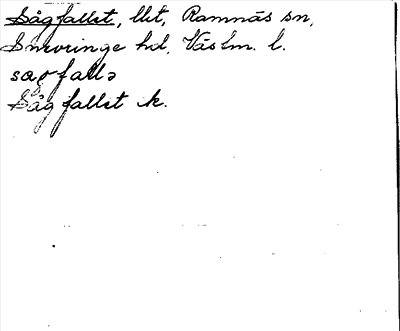 Sågfallet, llt, Ramnäs sn,
Snevringe hd, Västm. l.
sågfallə
Sågfallet k.